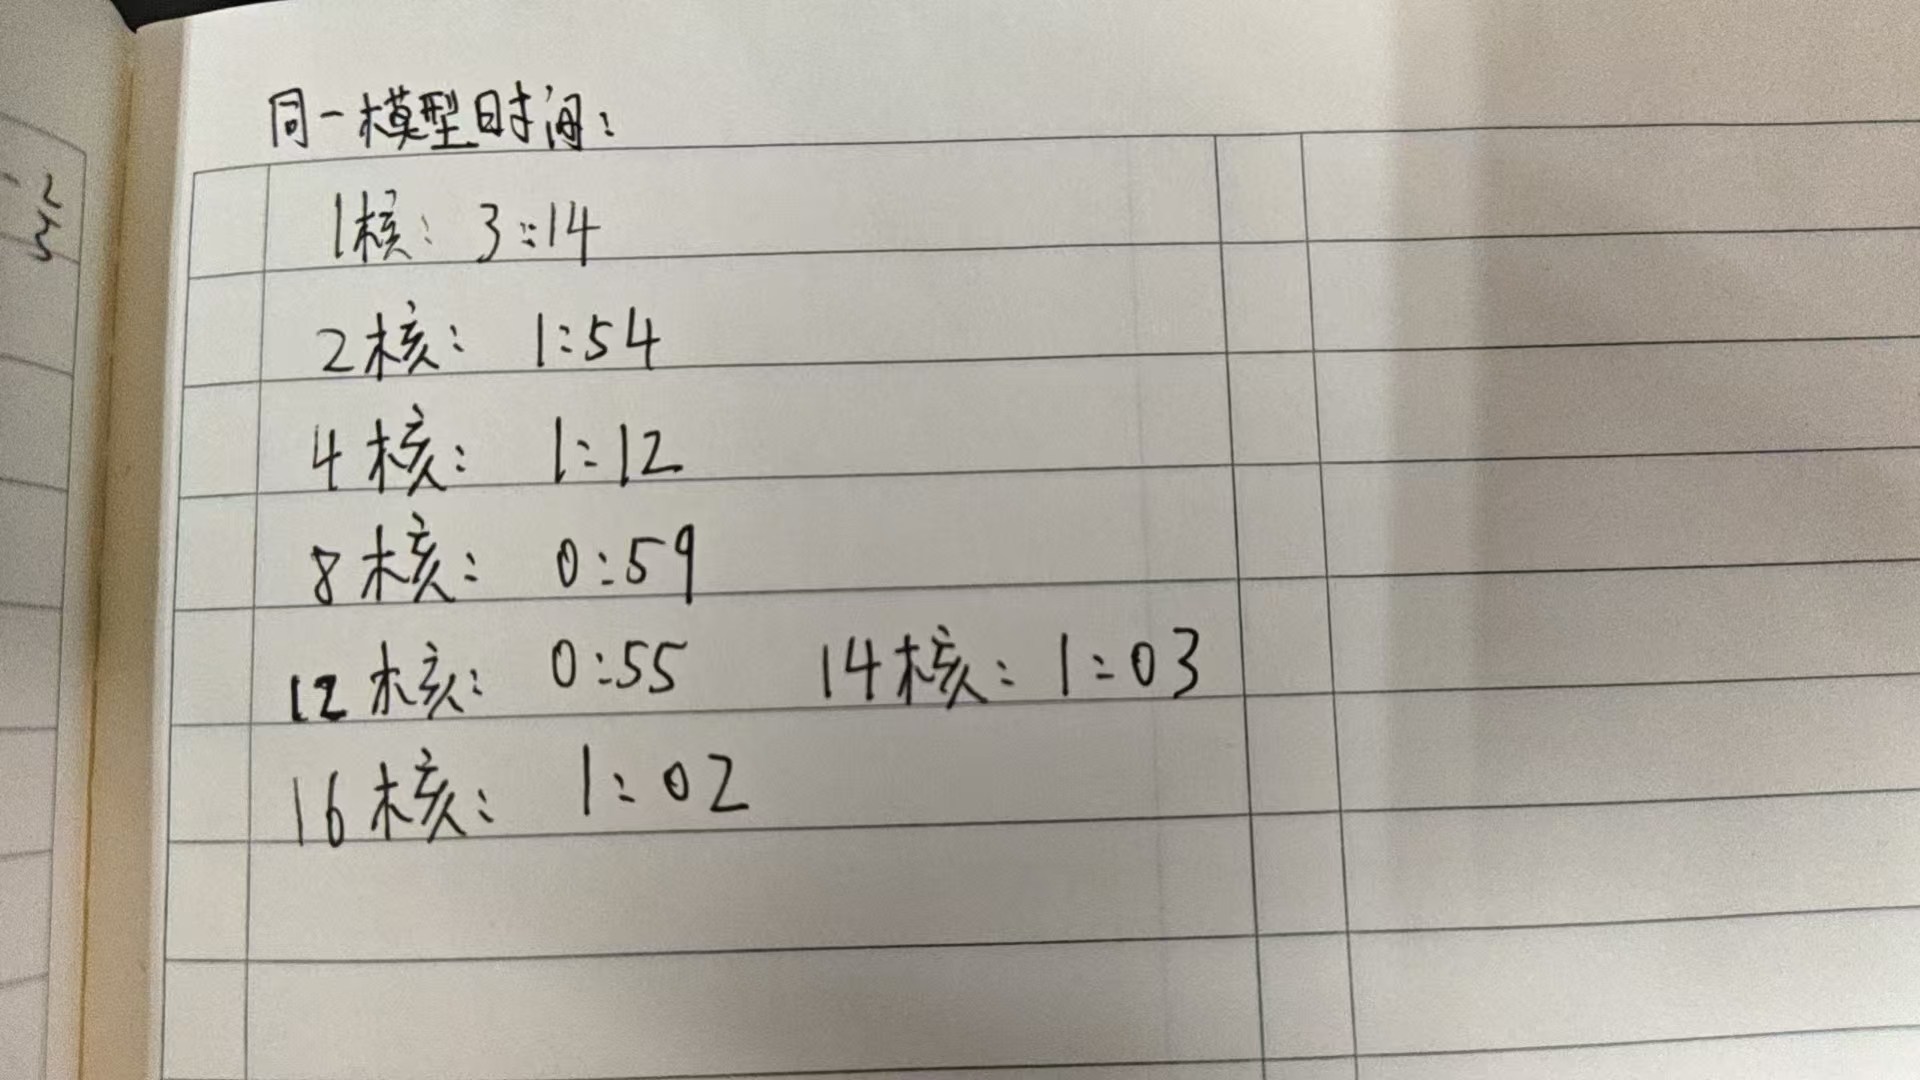 同一模型时间:
1核: 3:14
2核: 1:54
4核: 1:12
8核: 0:59
12核: 0:55 14核: 1:03
16核: 1:02